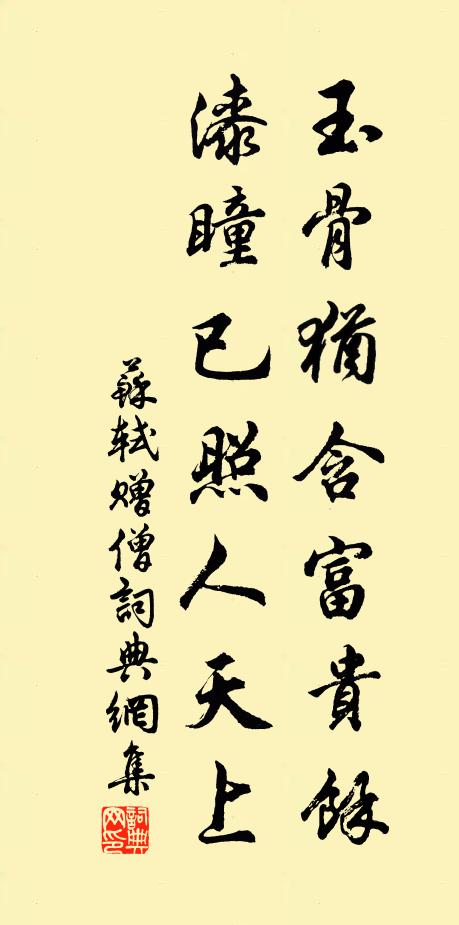 玉骨猶含富貴餘
漆瞳已照人天上
蘇軾贈僧詞典網集
詞典網印